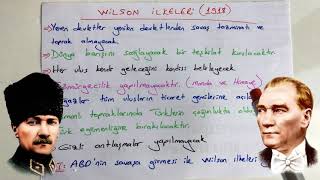 WILSON İLKELERİ (1918)
→ Yenen devletler yenilen devletlerden savaş tazminatı ve
toprak almayacak.
→ Dünya barışını sağlayacak bir teşkilat kurulacaktır.
→ Her ulus kendi geleceğini kendisi belirleyecek
Sömürgecilik yapılmayacaktır. (manda ve Himaye)
Boğazlar tüm ulusların ticaret gemilerine açık
topraklarında Türklerin çoğunlukta
egemenliğine bırakılacaktır.
Gizli antlaşmalar yapılmayacak
ABD'nin savaşa girmesi ile Wilson ilkeleri